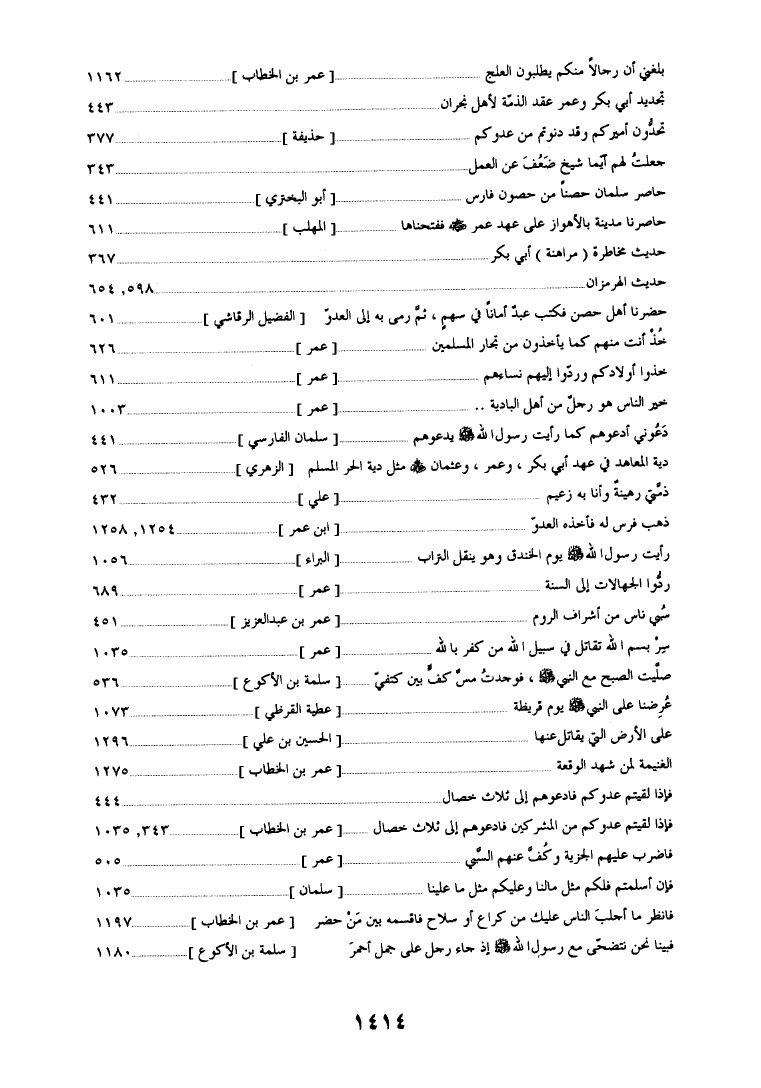 بلغني أن رجالاً منكم يطلبون العلج [ عمر بن الخطاب ] ١١٦٢
تجديد أبي بكر وعمر عقد الذمّة لأهل نجران ٤٤٣
تحدُّون أميركم وقد دنوتم من عدوكم [ حذيفة ] ٣٧٧
جعلتُ لهم أيّما شيخ ضَعُفَ عن العمل ٣٤٣
حاصر سلمان حصناً من حصون فارس [ أبو البختري ] ٤٤١
حاصرنا مدينة بالأهواز على عهد عمر ﵁ ففتحناها [ المهلب ] ٦١١
حديث مخاطرة ( مراهنة ) أبي بكر ٣٦٧
حديث الهرمزان ٥٩٨, ٦٥٤
حضرنا أهل حصن فكتب عبدٌ أماناً في سهمٍ ، ثمَّ رمى به إلى العدوّ [ الفضيل الرقاشي ] ٦٠١
خُذْ أنت منهم كما يأخذون من تجار المسلمين [ عمر ] ٦٢٦
خذوا أولادكم وردّوا إليهم نساءهم [ عمر ] ٦١١
خير الناس هو رجلٌ من أهل البادية .. [ عمر ] ١٠٠٣
دَعُوني أدعوهم كما رأيت رسول الله ﷺ يدعوهم [ سلمان الفارسي ] ٤٤١
دية المعاهد في عهد أبي بكر ، وعمر ، وعثمان ﵃ مثل دية الحر المسلم [ الزهري ] ٥٢٦
ذمّتي رهينةٌ وأنا به زعيم [ علي ] ٤٣٢
ذهب فرس له فأخذه العدوّ [ ابن عمر ] ١٢٥٤, ١٢٥٨
رأيت رسول الله ﷺ يوم الخندق وهو ينقل التراب [ البراء ] ١٠٥٦
ردُّوا الجهالات إلى السنة [ عمر ] ٦٨٩
سُبي ناس من أشراف الروم [ عمر بن عبدالعزيز ] ٤٥١
سِرْ بسم الله تقاتل في سبيل الله من كفر بالله [ عمر ] ١٠٣٥
صلّيت الصبح مع النبي ﷺ ، فوجدتُ مسَّ كفٍّ بين كتفيّ [ سلمة بن الأكوع ] ٥٣٦
عُرِضنا على النبي ﷺ يوم قريظة [ عطية القرظي ] ١٠٧٣
على الأرض التي يقاتل عنها [ الحسين بن علي ] ١٢٩٦
الغنيمة لمن شهد الوقعة [ عمر بن الخطاب ] ١٢٧٥
فإذا لقيتم عدوكم فادعوهم إلى ثلاث خصال ٤٤٤
فإذا لقيتم عدوكم من المشركين فادعوهم إلى ثلاث خصال [ عمر بن الخطاب ] ٣٤٣, ١٠٣٥
فاضرب عليهم الجزية وكُفَّ عنهم السَّبي [ عمر ] ٥٠٥
فإن أسلمتم فلكم مثل مالنا وعليكم مثل ما علينا [ سلمان ] ١٠٣٥
فانظر ما أجلبَ الناس عليك من كراع أو سلاح فاقسمه بين مَنْ حضر [ عمر بن الخطاب ] ١١٩٧
فبينا نحن نتضحّى مع رسول الله ﷺ إذ جاء رجل على جمل أحمرَ [ سلمة بن الأكوع ] ١١٨٠
١٤١٤